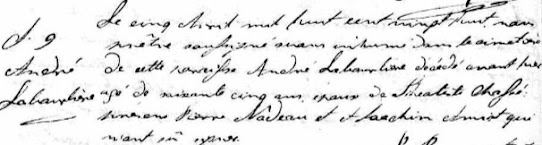 Le cinq Avril mil huit cent vingt huit nous
S. 9 prêtre soussigné avons inhumé dans le cimetière
André de cette paroisse André Labourlière décédé avant hier
Labourlière agé de soixante cinq ans, époux de Chassé:
présens Pierre Nadeau et Joachim Amiot qui
n'ont sû signer